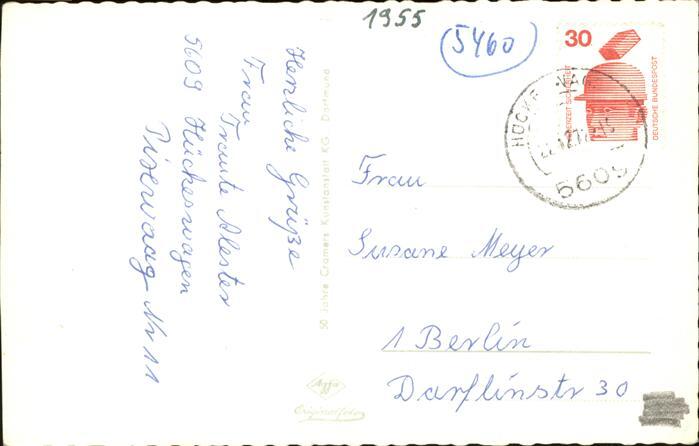 1955
(5460)
30
JEDERZEIT SICHERHEIT
DEUTSCHE BUNDESPOST
5609
Herzliche Grüße
Frau
Traute Alester
5609 Hückeswagen
Nr 11
50 Jahre Cramers Kunstanstalt KG Dortmund
Frau
Susane Meyer
1 Berlin
Darflinstr 30
Agfa
Originalfoto